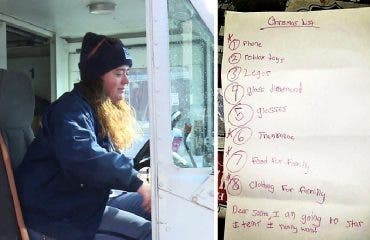 Christmas List
1 Phone
2 roblox toys
3 Legos
4 glass diamond
5 glosses
6
7 Food for family
8 Clothing for family
Dear Santa, I am going to star
1 item I really want